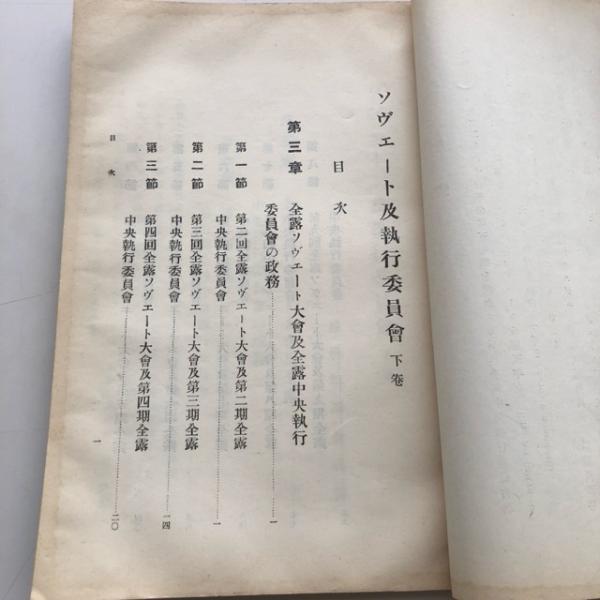 ソヴェート及執行委員會 下卷
目次
第三章 全露ソヴェート大會及全露中央執行
委員會の政務……………一
第一節 第二回全露ソヴェート大會及第二期全露
中央執行委員會……………一
第二節 第三回全露ソヴェート大會及第三期全露
中央執行委員會……………一四
第三節 第四回全露ソヴェート大會及第四期全露
中央執行委員會……………二〇
目次
一